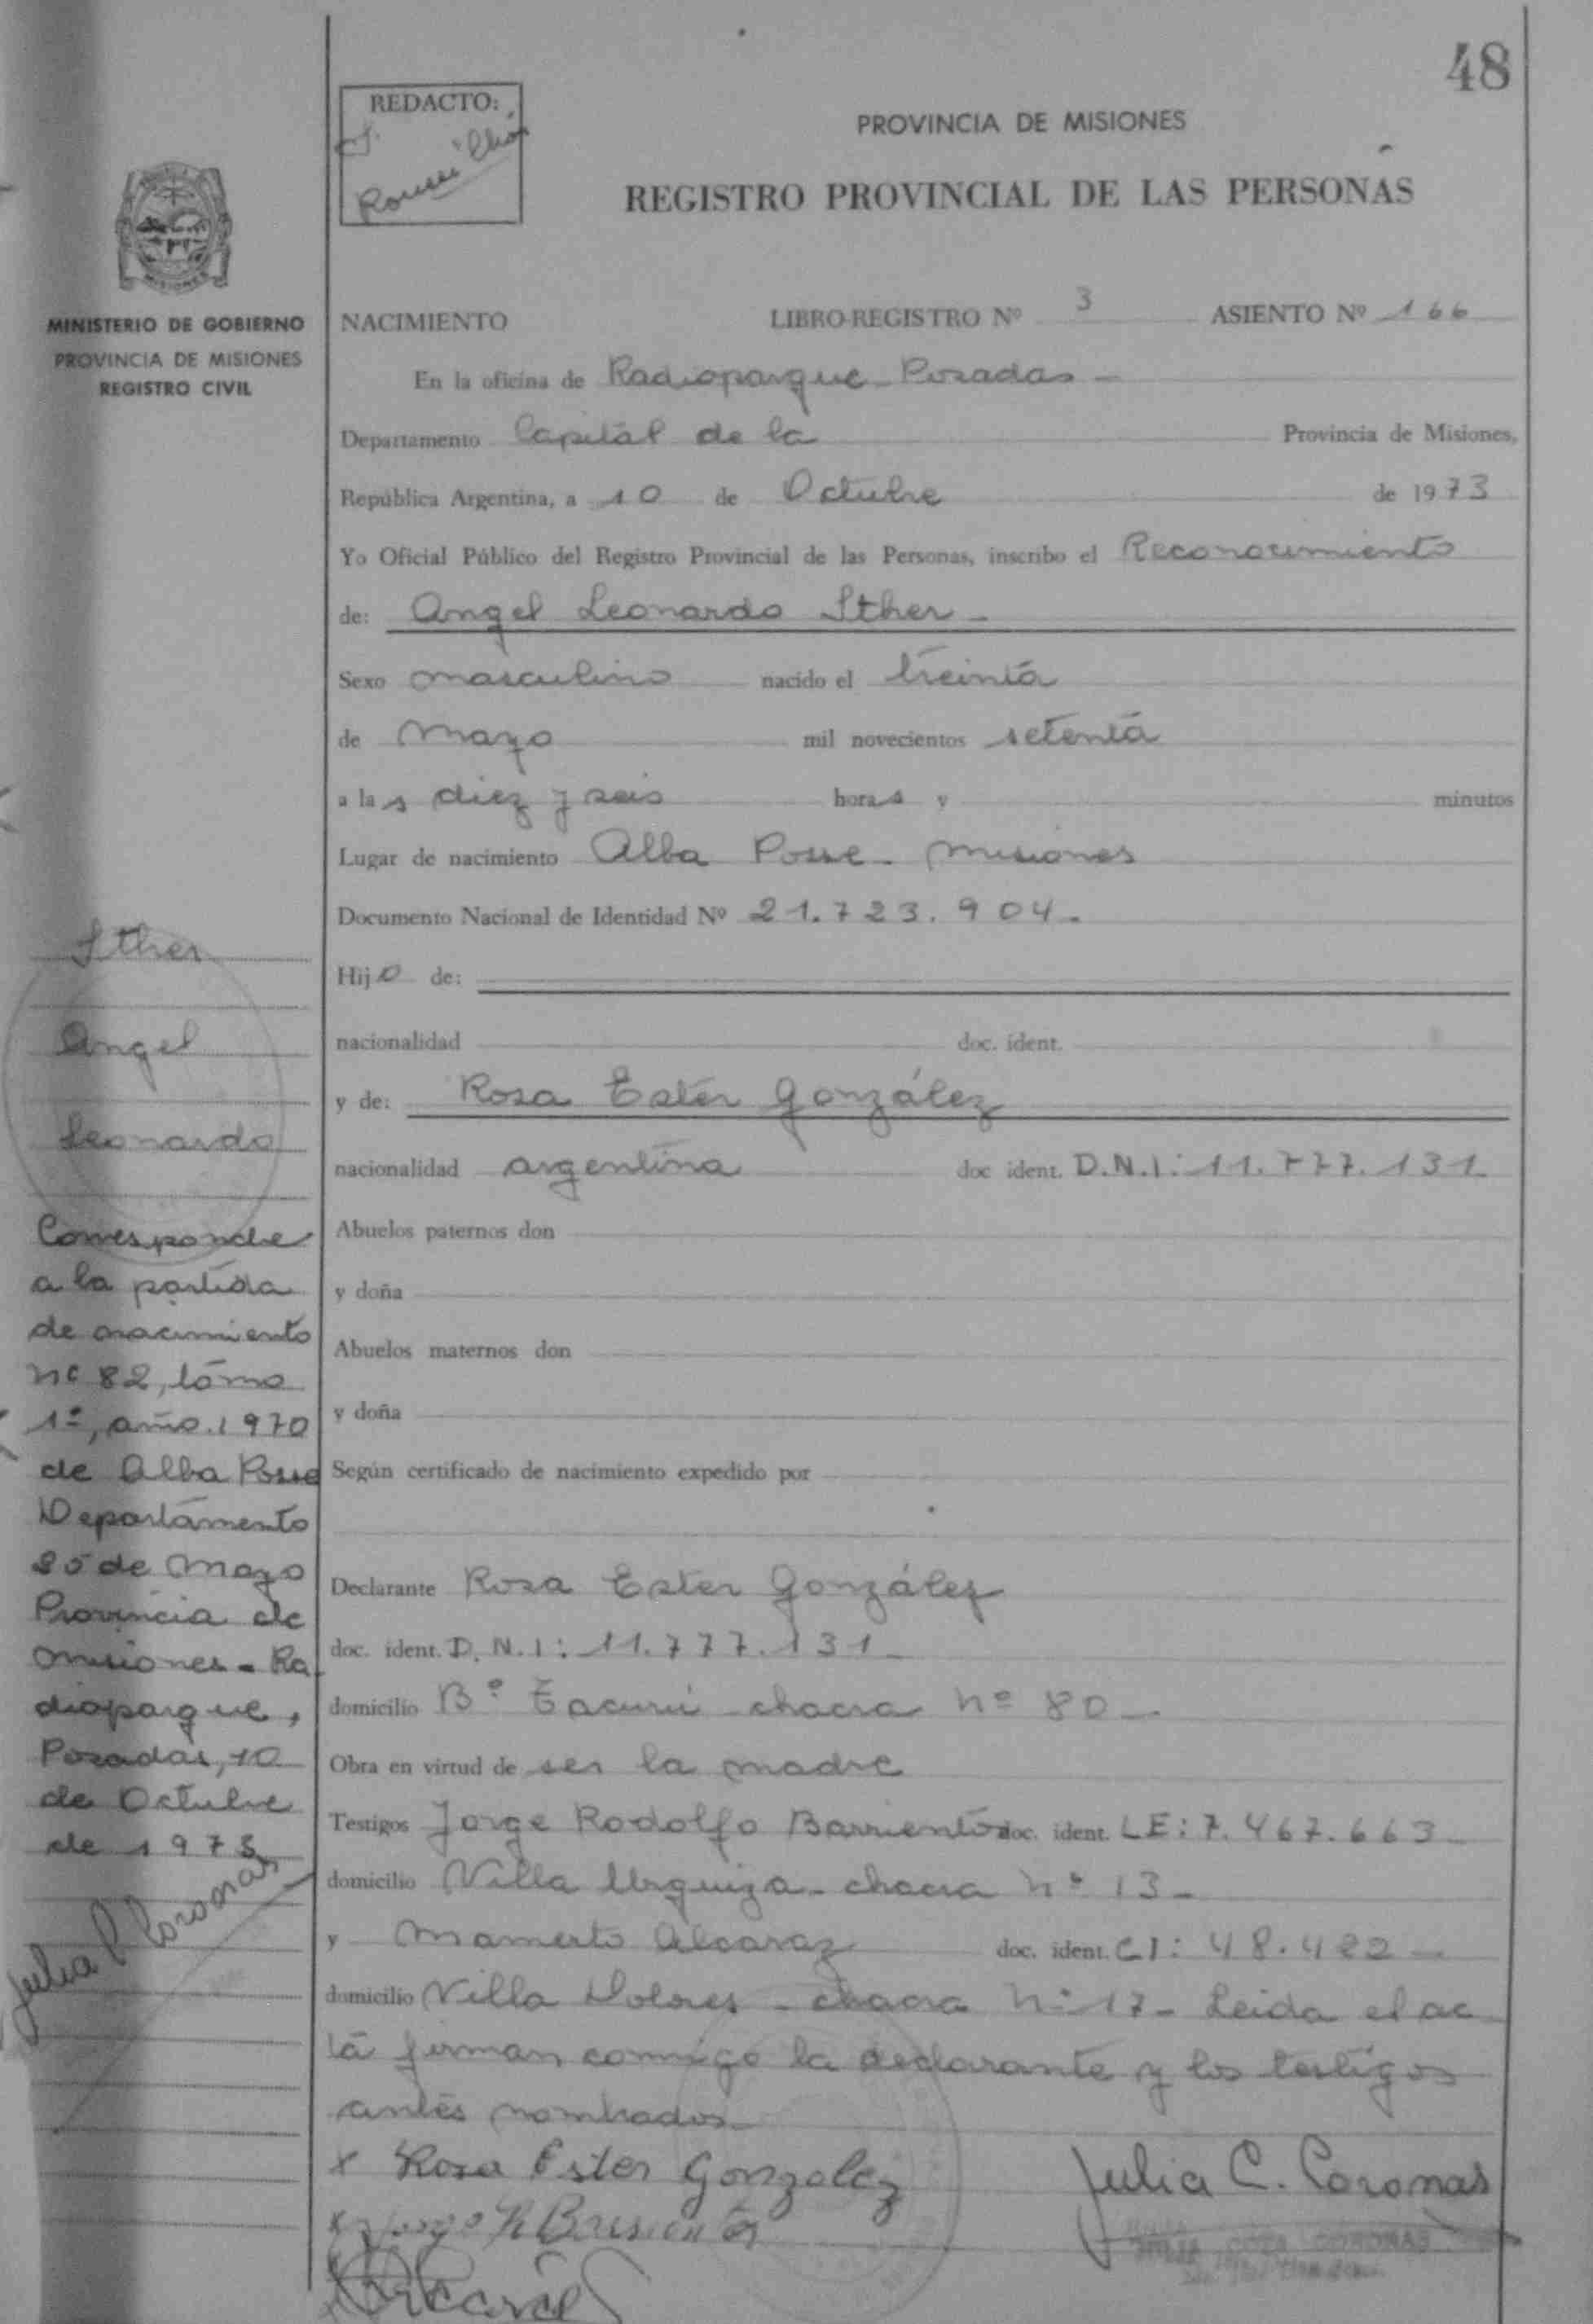 48
REDACTO:
PROVINCIA DE MISIONES
REGISTRO PROVINCIAL DE LAS PERSONAS
MISIONES
MINISTERIO DE GOBIERNO
PROVINCIA DE MISIONES
REGISTRO CIVIL
NACIMIENTO LIBRO-REGISTRO Nº 3 ASIENTO Nº 166
En la oficina de Radioparque - Posadas -
Departamento Capital de la Provincia de Misiones,
República Argentina, a 10 de Octubre de 1973
Yo Oficial Público del Registro Provincial de las Personas, inscribo el Reconocimiento
de: Angel Leonardo Sther -
Sexo masculino nacido el treinta
de Mayo mil novecientos setenta
a las diez y seis horas y minutos
Lugar de nacimiento Alba Posse - Misiones
Documento Nacional de Identidad Nº 21.723.904.
Hijo de:
nacionalidad doc. ident.
y de: Rosa Ester González
nacionalidad argentina doc ident. D.N.I: 11.777.131
Abuelos paternos don
y doña
Abuelos maternos don
y doña
Según certificado de nacimiento expedido por
Declarante Rosa Ester González
doc. ident. D.N.I: 11.777.131
domicilio Bº Tacurú chacra nº 80 -
Obra en virtud de ser la madre
Testigos Jorge Rodolfo Barrientos doc. ident. LE: 7.467.663
domicilio Villa Urquiza - chacra nº 13 -
y Mamerto Alcaraz doc. ident. CI: 48.422 -
domicilio Villa Dolores - chacra nº 17 - Leida el ac
ta firman conmigo la declarante y los testigos
antes nombrados -
x Rosa Ester Gonzalez
Julia C. Coronas
Sther
Angel
Leonardo
Corresponde
a la partida
de nacimiento
nº 82, tomo
1º, año 1970
de Alba Posse
Departamento
25 de Mayo
Provincia de
Misiones - Ra
dioparque,
Posadas, 10
de Octubre
de 1973
Julia C Coronas